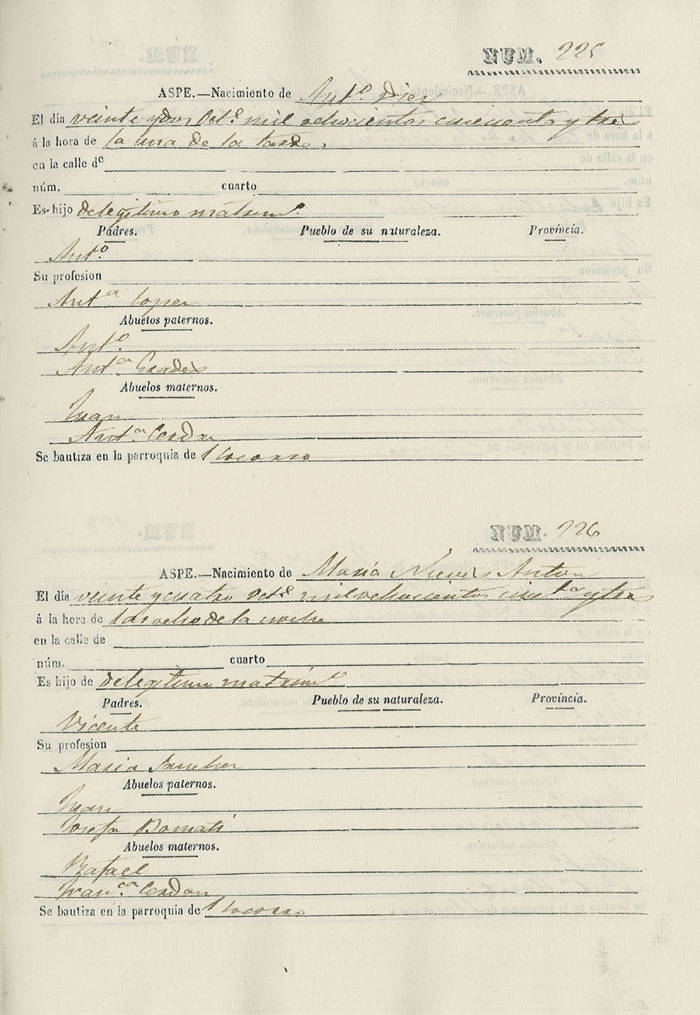 NUM. 225
ASPE.—Nacimiento de Antº Dier
El dia veinte y dos Octe. mil ochocientos cincuenta y tres
á la hora de la una de la tarde.
en la calle de
núm. cuarto
Es hijo de legitimo matrimº.
Padres. Pueblo de su naturaleza. Provincia.
Antº
Su profesion
Antª Lopez
Abuelos paternos.
Antº.
Antª
Abuelos maternos.
Juan
Antª Cerdan
Se bautiza en la parroquia de l Socorro
NUM. 226
ASPE.—Nacimiento de Maria Nieves Anton
El dia veinte y cuatro Octe. mil ochocientos cincta y tres
á la hora de las ocho de la noche
en la calle de
núm. cuarto
Es hijo de de legitimo matrimº
Padres. Pueblo de su naturaleza. Provincia.
Vicente
Su profesion
Maria Sanchez
Abuelos paternos.
Juan
Josefa Bomati
Abuelos maternos.
Rafael
Franca Cerdan
Se bautiza en la parroquia de l Socorro